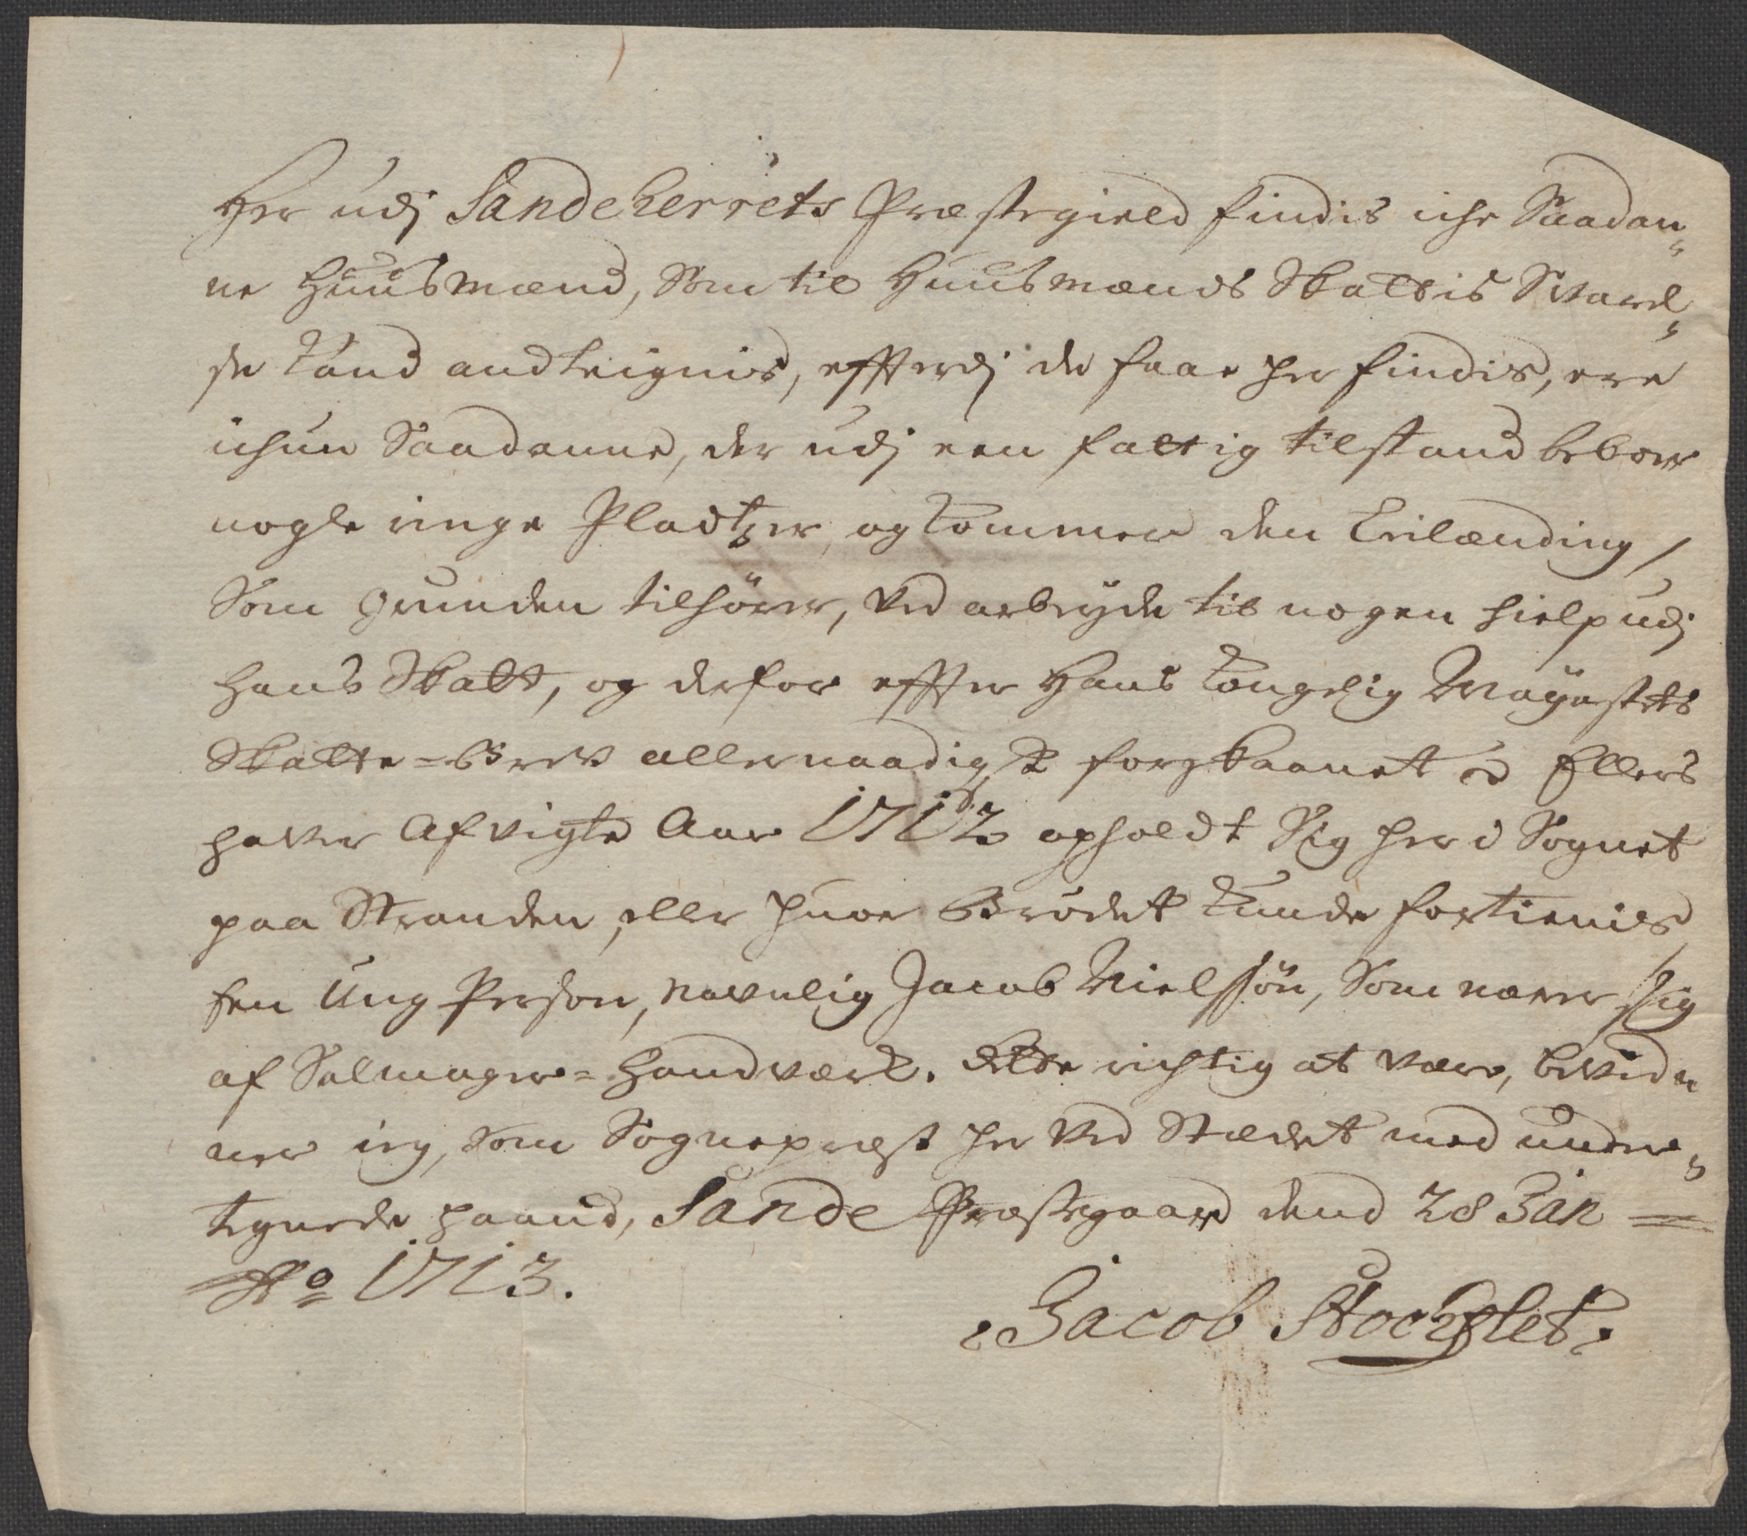 Her udj Sandeherrets Præstegield findis iche Saadan-
ne Huusmænd, Som til Huusmænds Skattis Svarel-
se kand andteignis, effterdj de faae her findis, ere
ichun Saadanne, der udj een fattig tilstand beboer
nogle ringe Pladtzer, og kommer den Leilænding,
Som grunden tilhörer, ved arbeyde til nogen hielp udj
hans Skatt, og derfor effter Hans Kongelig Mayestets
Skatte-Brev allernaadigst forskaanet Ellers
haver Afvigte Aar 1712 opholdt Sig her i Sognet
paa Stranden, eller hvor Brödet kunde fortienis
Een Ung Person, navnlig Jacob Nielssön, Som nærer Sig
af Salmager-Handværk. dette richtig at være, bevid-
ner ieg, Som Sognepræst her ved Stædet med under-
tegnede haand, Sande Præstegaard dend 28 Jan =
Ao 1713.
Jacob Stochflet.